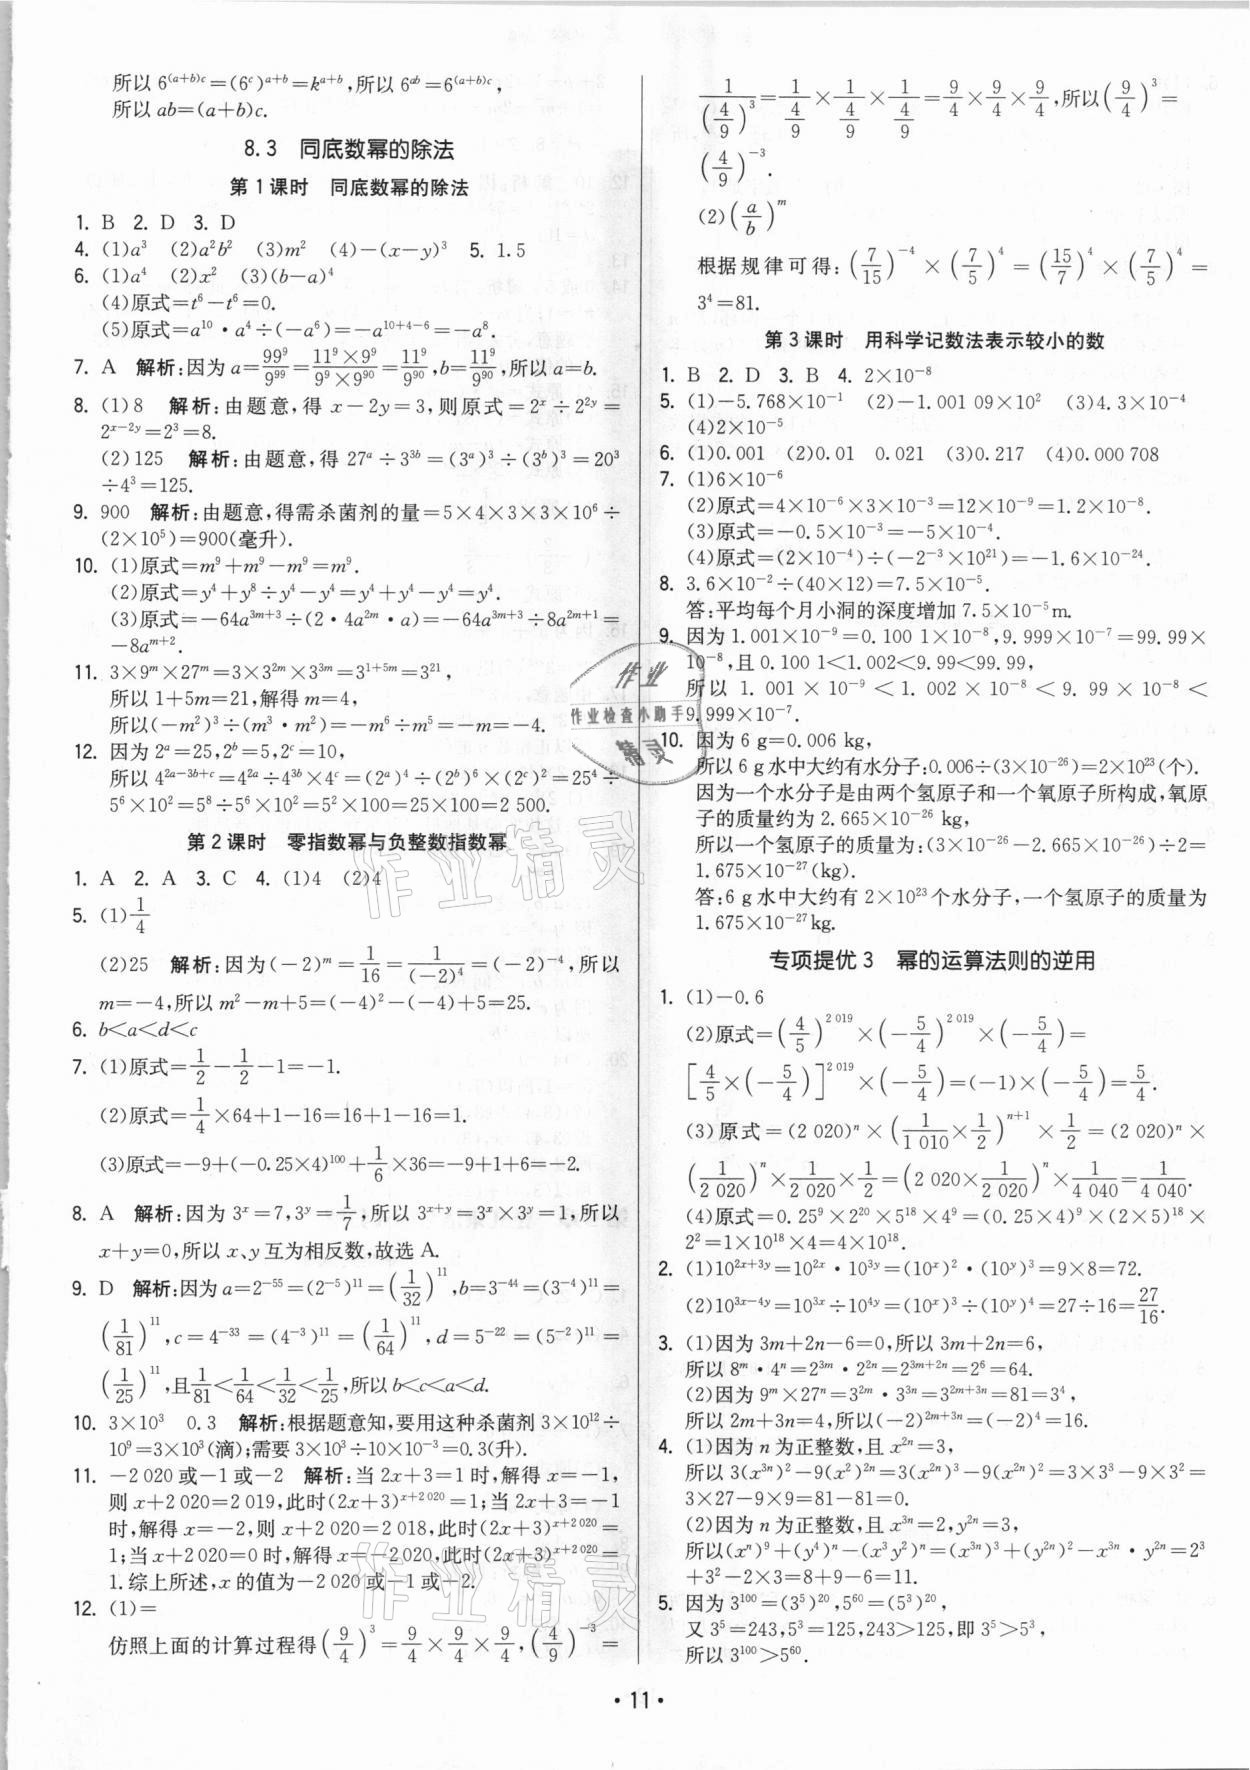 所以 6^{(a+b)c}=(6^c)^{a+b}=k^{a+b},所以 6^{ab}=6^{(a+b)c},
所以 ab=(a+b)c.
8.3 同底数幂的除法
第1课时 同底数幂的除法
1. B 2. D 3. D
4. (1)a³ (2)a²b² (3)m² (4)-(x-y)³ 5. 1.5
6. (1)a⁴ (2)x² (3)(b-a)⁴
(4)原式=t⁶-t⁶=0.
(5)原式=a¹⁰·a⁴÷(-a⁶)=-a^{10+4-6}=-a⁸.
7. A 解析:因为 a=99⁹/9⁹⁹=(11⁹×9⁹)/(9⁹×9⁹⁰)=11⁹/9⁹⁰,b=11⁹/9⁹⁰,所以 a=b.
8. (1)8 解析:由题意,得 x-2y=3,则原式=2^x÷2^{2y}=
2^{x-2y}=2³=8.
(2)125 解析:由题意,得 27^a÷3^{3b}=(3^a)³÷(3^b)³=20³
÷4³=125.
9. 900 解析:由题意,得需杀菌剂的量=5×4×3×3×10⁶÷
(2×10⁵)=900(毫升).
10. (1)原式=m⁹+m⁹-m⁹=m⁹.
(2)原式=y⁴+y⁸÷y⁴-y⁴=y⁴+y⁴-y⁴=y⁴.
(3)原式=-64a^{3m+3}÷(2·4a^{2m}·a)=-64a^{3m+3}÷8a^{2m+1}=
-8a^{m+2}.
11. 3×9^m×27^m=3×3^{2m}×3^{3m}=3^{1+5m}=3²¹,
所以 1+5m=21,解得 m=4,
所以(-m²)³÷(m³·m²)=-m⁶÷m⁵=-m=-4.
12. 因为 2^a=25,2^b=5,2^c=10,
所以 4^{2a-3b+c}=4^{2a}÷4^{3b}×4^c=(2^a)⁴÷(2^b)⁶×(2^c)²=25⁴÷
5⁶×10²=5⁸÷5⁶×10²=5²×100=25×100=2 500.
第2课时 零指数幂与负整数指数幂
1. A 2. A 3. C 4. (1)4 (2)4
5. (1)1/4
(2)25 解析:因为(-2)^m=1/16=1/(-2)⁴=(-2)⁻⁴,所以
m=-4,所以 m²-m+5=(-4)²-(-4)+5=25.
6. b<a<d<c
7. (1)原式=1/2-1/2-1=-1.
(2)原式=1/4×64+1-16=16+1-16=1.
(3)原式=-9+(-0.25×4)¹⁰⁰+1/6×36=-9+1+6=-2.
8. A 解析:因为 3^x=7,3^y=1/7,所以 3^{x+y}=3^x×3^y=1,所以
x+y=0,所以 x、y 互为相反数,故选 A.
9. D 解析:因为 a=2⁻⁵⁵=(2⁻⁵)¹¹=(1/32)¹¹,b=3⁻⁴⁴=(3⁻⁴)¹¹=
(1/81)¹¹,c=4⁻³³=(4⁻³)¹¹=(1/64)¹¹,d=5⁻²²=(5⁻²)¹¹=
(1/25)¹¹,且1/81<1/64<1/32<1/25,所以 b<c<a<d.
10. 3×10³ 0.3 解析:根据题意知,要用这种杀菌剂 3×10¹²÷
10⁹=3×10³(滴);需要 3×10³÷10×10⁻³=0.3(升).
11. -2 020 或-1 或-2 解析:当 2x+3=1 时,解得 x=-1,
则 x+2 020=2 019,此时(2x+3)^{x+2 020}=1;当 2x+3=-1
时,解得 x=-2,则 x+2 020=2 018,此时(2x+3)^{x+2 020}=
1;当 x+2 020=0 时,解得 x=-2 020,此时(2x+3)^{x+2 020}=
1.综上所述,x 的值为-2 020 或-1 或-2.
12. (1)=
仿照上面的计算过程得(9/4)³=9/4×9/4×9/4,(4/9)⁻³=
1/(4/9)³=1/(4/9)×1/(4/9)×1/(4/9)=9/4×9/4×9/4,所以(9/4)³=
(4/9)⁻³.
(2)(a/b)^m
根据规律可得:(7/15)⁻⁴×(7/5)⁴=(15/7)⁴×(7/5)⁴=
3⁴=81.
第3课时 用科学记数法表示较小的数
1. B 2. D 3. B 4. 2×10⁻⁸
5. (1)-5.768×10⁻¹ (2)-1.001 09×10² (3)4.3×10⁻⁴
(4)2×10⁻⁵
6. (1)0.001 (2)0.01 0.021 (3)0.217 (4)0.000 708
7. (1)6×10⁻⁶
(2)原式=4×10⁻⁶×3×10⁻³=12×10⁻⁹=1.2×10⁻⁸.
(3)原式=-0.5×10⁻³=-5×10⁻⁴.
(4)原式=(2×10⁻⁴)÷(-2⁻³×10²¹)=-1.6×10⁻²⁴.
8. 3.6×10⁻²÷(40×12)=7.5×10⁻⁵.
答:平均每个月小洞的深度增加 7.5×10⁻⁵m.
9. 因为 1.001×10⁻⁹=0.100 1×10⁻⁸,9.999×10⁻⁷=99.99×
10⁻⁸,且 0.100 1<1.002<9.99<99.99,
所以 1.001×10⁻⁹<1.002×10⁻⁸<9.99×10⁻⁸<
9.999×10⁻⁷.
10. 因为 6 g=0.006 kg,
所以 6 g 水中大约有水分子:0.006÷(3×10⁻²⁶)=2×10²³(个).
因为一个水分子是由两个氢原子和一个氧原子所构成,氧原
子的质量约为 2.665×10⁻²⁶ kg,
所以一个氢原子的质量为:(3×10⁻²⁶-2.665×10⁻²⁶)÷2=
1.675×10⁻²⁷(kg).
答:6 g 水中大约有 2×10²³ 个水分子,一个氢原子的质量为
1.675×10⁻²⁷kg.
专项提优3 幂的运算法则的逆用
1. (1)-0.6
(2)原式=(4/5)^{2 019}×(-5/4)^{2 019}×(-5/4)=
[4/5×(-5/4)]^{2 019}×(-5/4)=(-1)×(-5/4)=5/4.
(3)原式=(2 020)^n×(1/1 010×1/2)^{n+1}×1/2=(2 020)^n×
(1/2 020)^n×1/2 020×1/2=(2 020×1/2 020)^n×1/4 040=1/4 040.
(4)原式=0.25⁹×2²⁰×5¹⁸×4⁹=(0.25×4)⁹×(2×5)¹⁸×
2²=1×10¹⁸×4=4×10¹⁸.
2. (1)10^{2x+3y}=10^{2x}·10^{3y}=(10^x)²·(10^y)³=9×8=72.
(2)10^{3x-4y}=10^{3x}÷10^{4y}=(10^x)³÷(10^y)⁴=27÷16=27/16.
3. (1)因为 3m+2n-6=0,所以 3m+2n=6,
所以 8^m·4^n=2^{3m}·2^{2n}=2^{3m+2n}=2⁶=64.
(2)因为 9^m×27^n=3^{2m}·3^{3n}=3^{2m+3n}=81=3⁴,
所以 2m+3n=4,所以(-2)^{2m+3n}=(-2)⁴=16.
4. (1)因为 n 为正整数,且 x^{2n}=3,
所以 3(x^{3n})²-9(x²)^{2n}=3(x^{2n})³-9(x^{2n})²=3×3³-9×3²=
3×27-9×9=81-81=0.
(2)因为 n 为正整数,且 x^{3n}=2,y^{2n}=3,
所以(x^n)⁹+(y⁴)^n-(x³y²)^n=(x^{3n})³+(y^{2n})²-x^{3n}·y^{2n}=2³
+3²-2×3=8+9-6=11.
5. 因为 3¹⁰⁰=(3⁵)²⁰,5⁶⁰=(5³)²⁰,
又 3⁵=243,5³=125,243>125,即 3⁵>5³,
所以 3¹⁰⁰>5⁶⁰.
·11·
作业
作业检查小助手
精灵
作业精灵
作业精灵